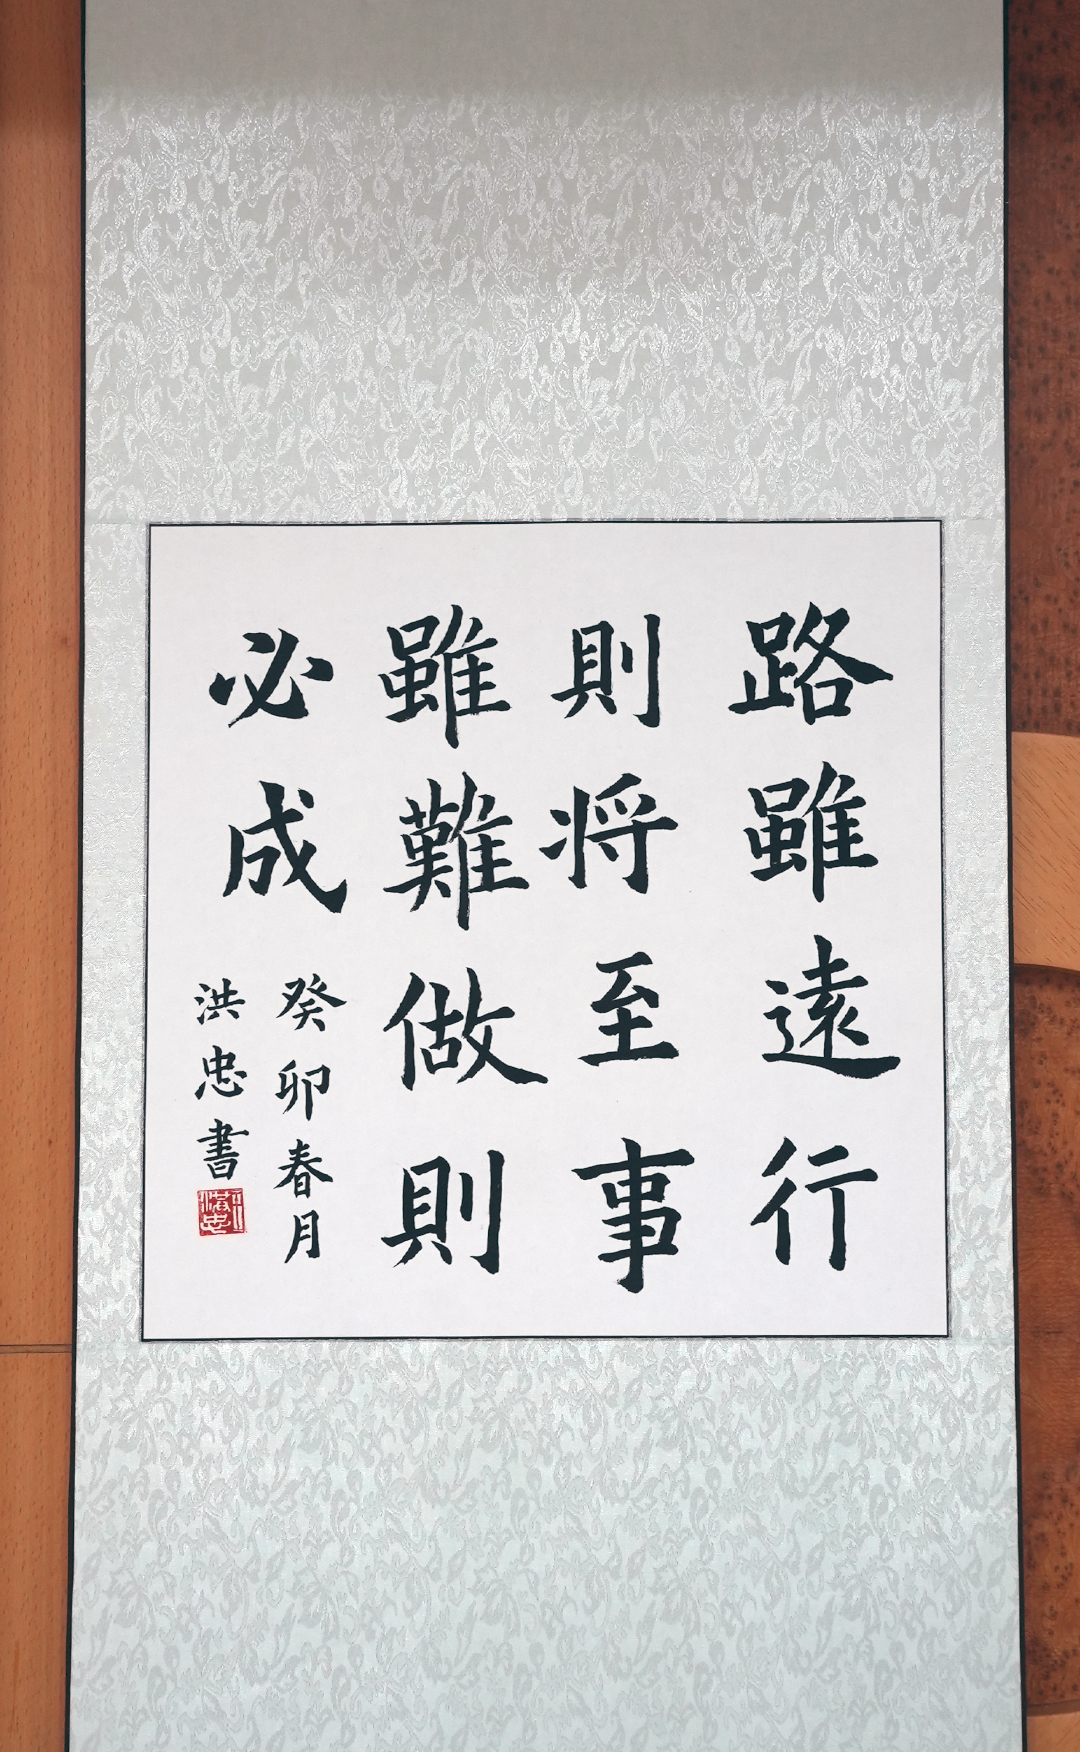 路雖遠行
則将至事
雖難做則
必成
癸卯春月
洪忠書